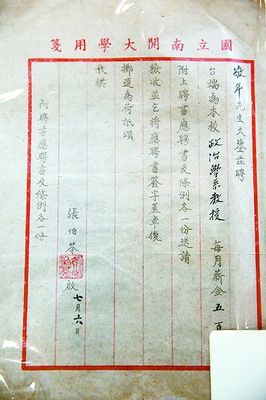 國立南開大學用箋
敬年先生大鑒茲聘
台端為本校政治學系教授 每月薪金五百
附上聘書應聘書及條例各一份送請
檢收並乞將應聘書簽字蓋章後
擲還為荷祗頌
教祺
張伯苓 啟 七月六日
附聘書應聘書及條例各一份